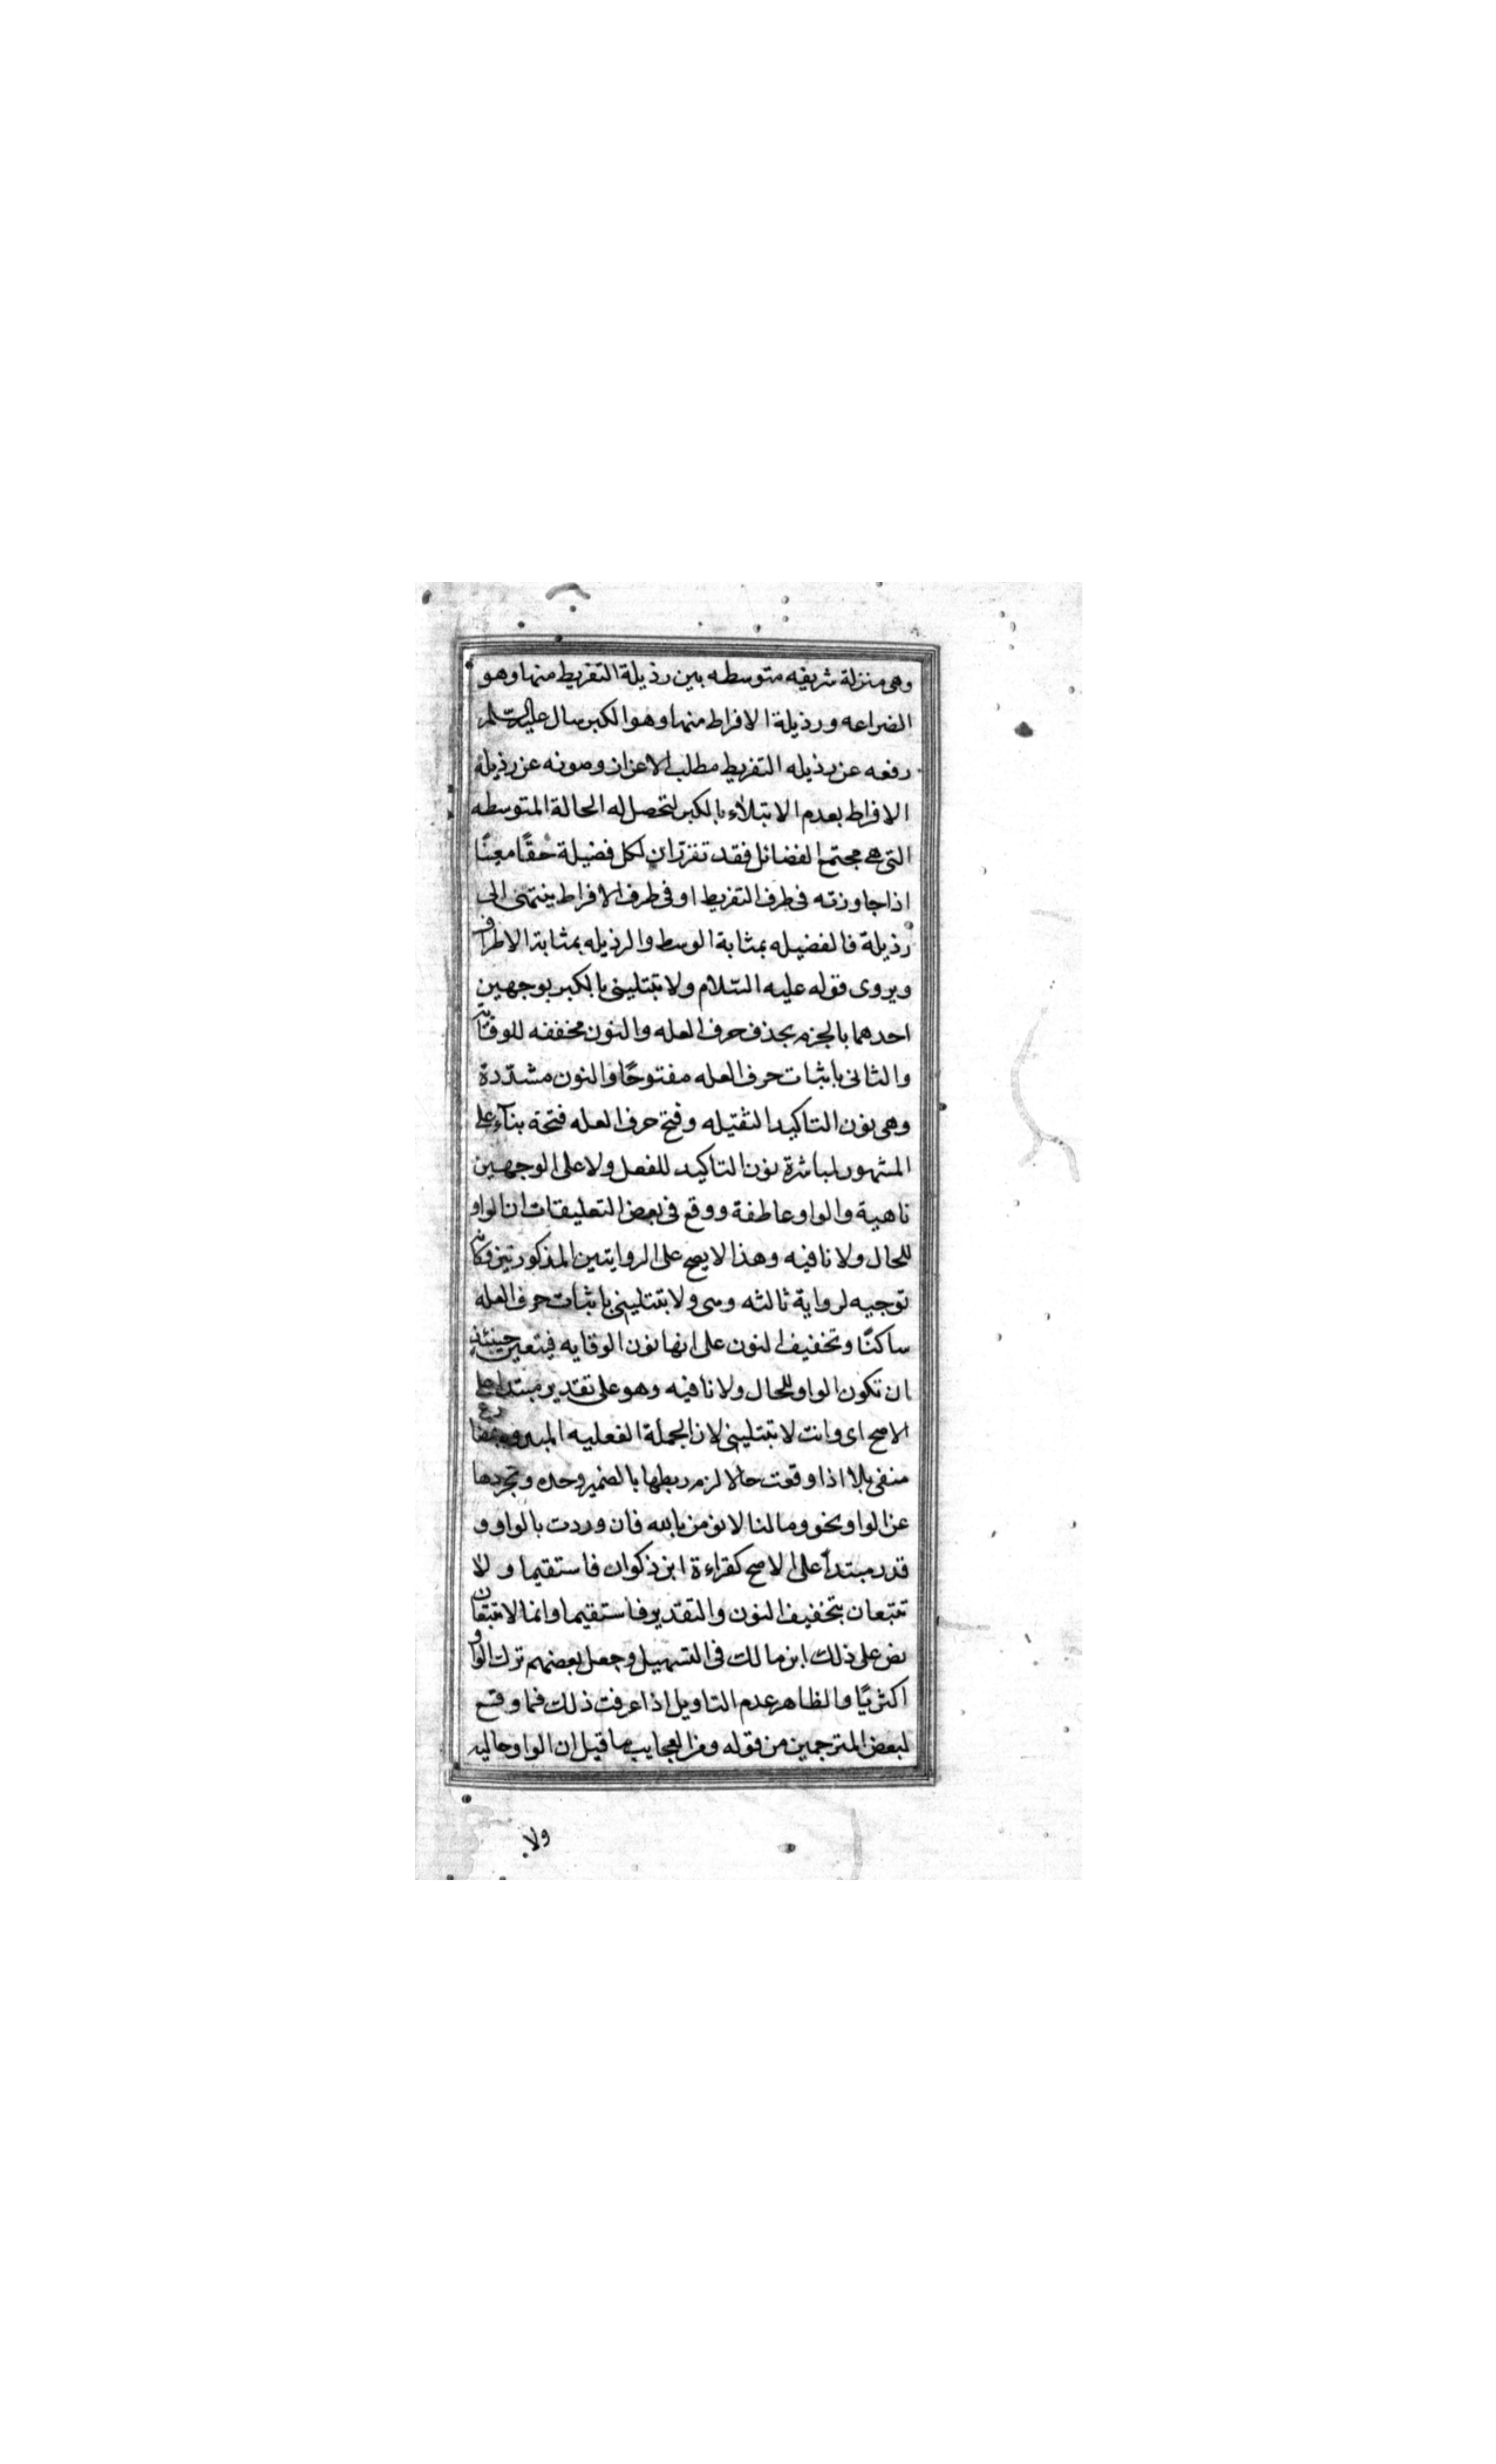 وهى منزلة شريفه متوسطه بين رذيلة التفريط منها وهو
الضراعه ورذيلة الافراط منها وهو الكبر سال عليه السّلم
رفعه عن رذيله التفريط مطلب الاعزاز وصونه عن رذيلة
الافراط بعدم الابتلاء بالكبر لتحصل له الحالة المتوسطه
التى هى مجتمع الفضائل فقد تقرّر ان لكل فضيلة حقًا معينًا
اذا جاوزته فى طرف التفريط او فى طرف الافراط ينتهى الى
رذيلة فالفضيله بمثابة الوسط والرذيله بمثابة الاطراف
ويروى قوله عليه السّلام ولا تبتلينى بالكبر بوجهين
احدهما بالجزم بحذف حرف العله والنون مخففه للوقاية
والثانى باثبات حرف العله مفتوحًا والنون مشدّدة
وهى نون التاكيد الثقيله وفتح حرف العله فتحة بناء على
المشهور لمباشرة نون التاكيد للفعل ولا على الوجهين
ناهية والواو عاطفة ووقع فى بعض التعليقات ان الواو
للحال ولا نافيه وهذا لا يصح على الروايتين المذكورتين وكانه
توجيه لرواية ثالثه وسى ولا تبتلينى باثبات حرف العله
ساكنًا وتخفيف النون على انها نون الوقايه فيتعين حينئذٍ
ان تكون الواو للحال ولا نافيه وهو على تقدير مبتدا على
الاصح اى وانت لا تبتلينى لان الجملة الفعليه المبدوه بمضارع
منفى بلا اذا وقعت حالا لزم ربطها بالضمير وحده وتجردها
عن الواو نحو وما لنا لا نؤمن بالله فان وردت بالواو و
قدر مبتدأ على الاصح كقراءة ابن ذكوان فاستقيما ولا
تتبعان بتخفيف النون والتقدير فاستقيما وانتما لا تتبعان
نص على ذلك ابن مالك فى التسهيل وجعل بعضهم ترك الواو
اكثريًا والظاهر عدم التاويل اذا عرفت ذلك فما وقع
لبعض المترجمين من قوله ومن العجايب ما قيل ان الواو حاليه
ولا